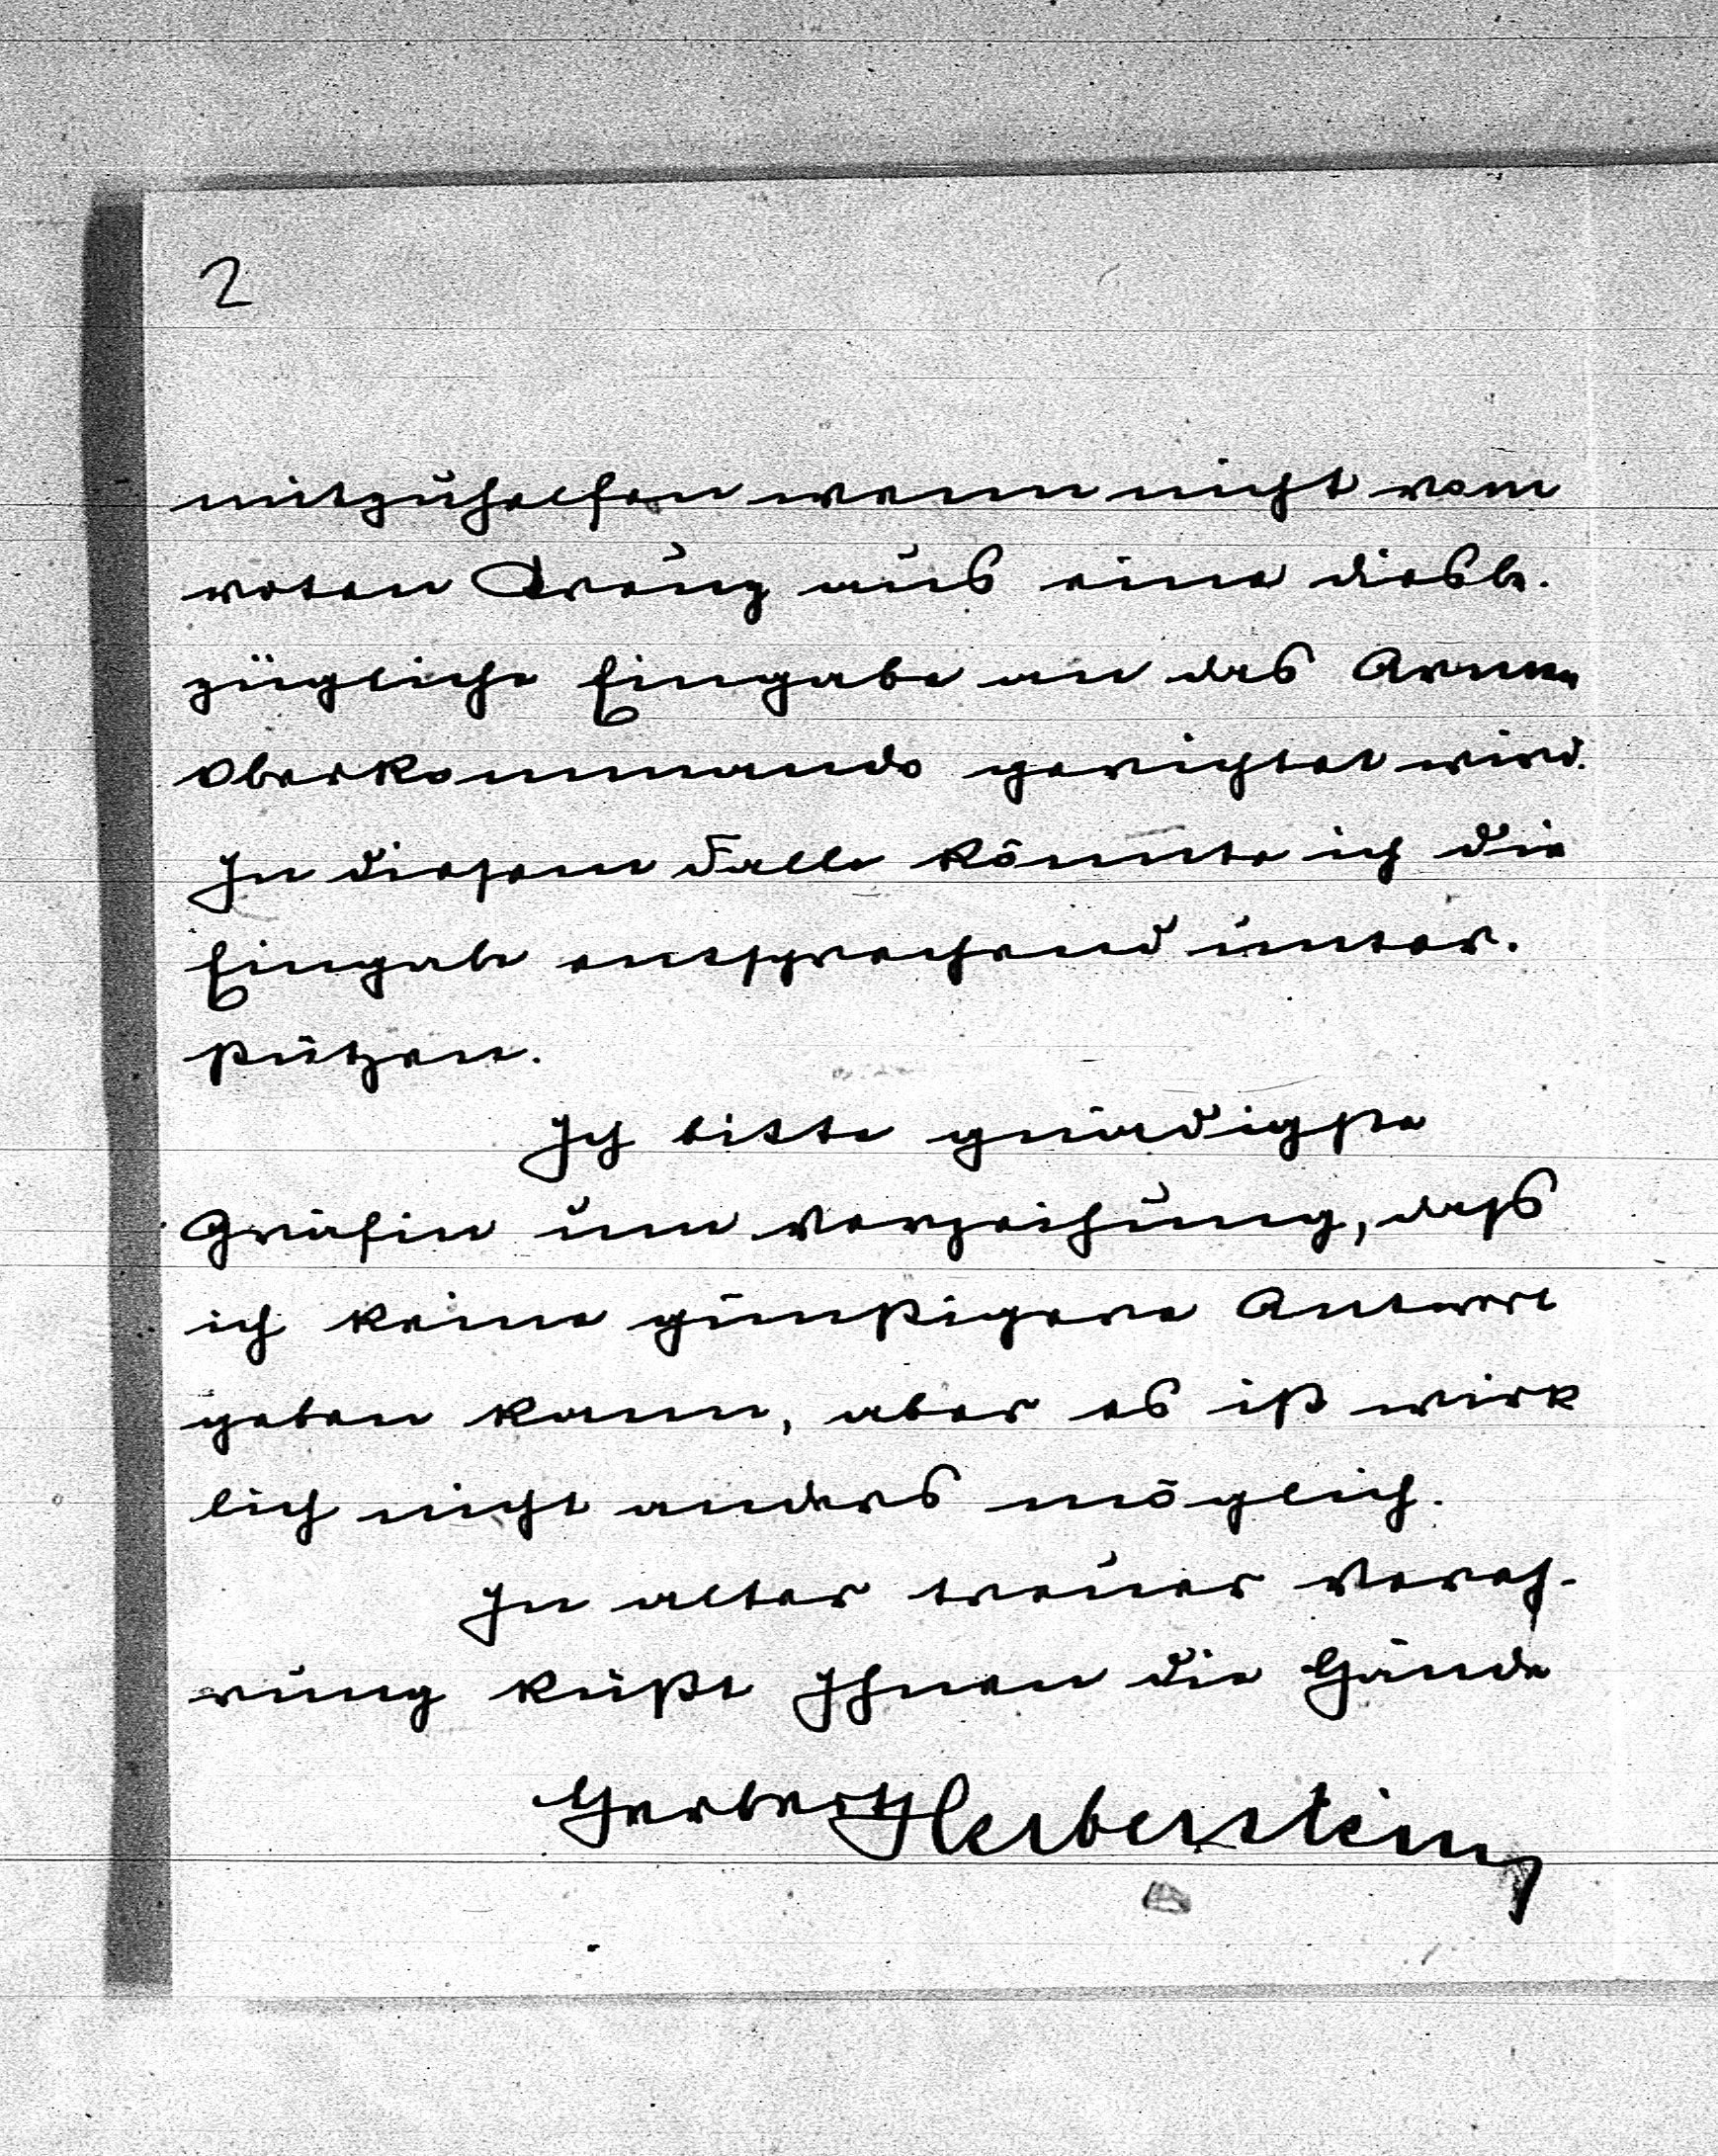 2
mitzuhelfen wenn nicht vom
roten Kreuz aus eine diesb.
zügliche Eingabe an das Armee
Oberkommando gerichtet wird.
In diesem Falle könnte ich die
Eingabe entsprechend unter.
stützen.
Ich bitte gnädigste
Gräfin um Verzeihung, dass
ich keine günstigere Antwort
geben kann, aber es ist wirk
lich nicht anders möglich.
In alter treuer Vereh-
rung küßt Ihnen die Hände
Herbert Herberstein